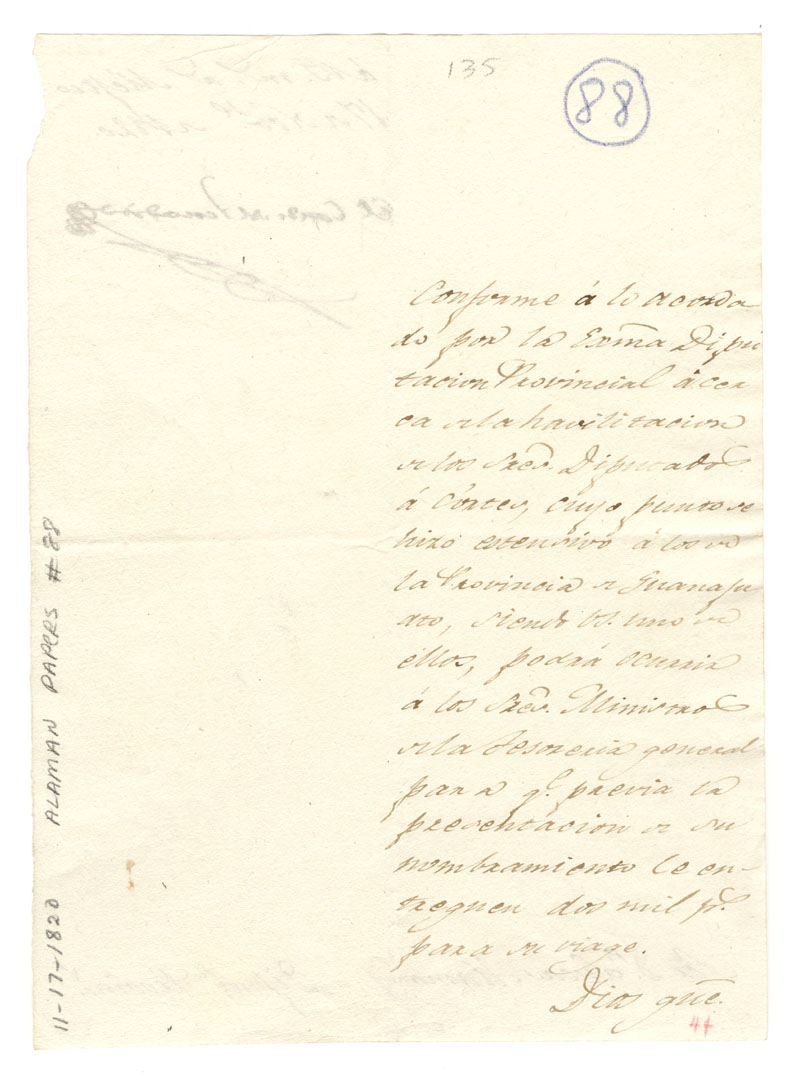 135
88
Conforme á lo acorda
do por la Exma Dipu
tacion Provincial acer
ca de la havilitacion
de los Sres. Diputados
á Córtes, cuyo punto se
hizo estensivo á los de
la Provincia de Guanaju
ato, siendo VS. uno de
ellos, podrá ocurrir
á los Sres. Ministros
de la Tesoreria general
para q.e previa la
presentacion de su
nombramiento le en-
treguen dos mil p.s
para su viage.
Dios gue.
44
11-17-1820 ALAMAN PAPERS # 88